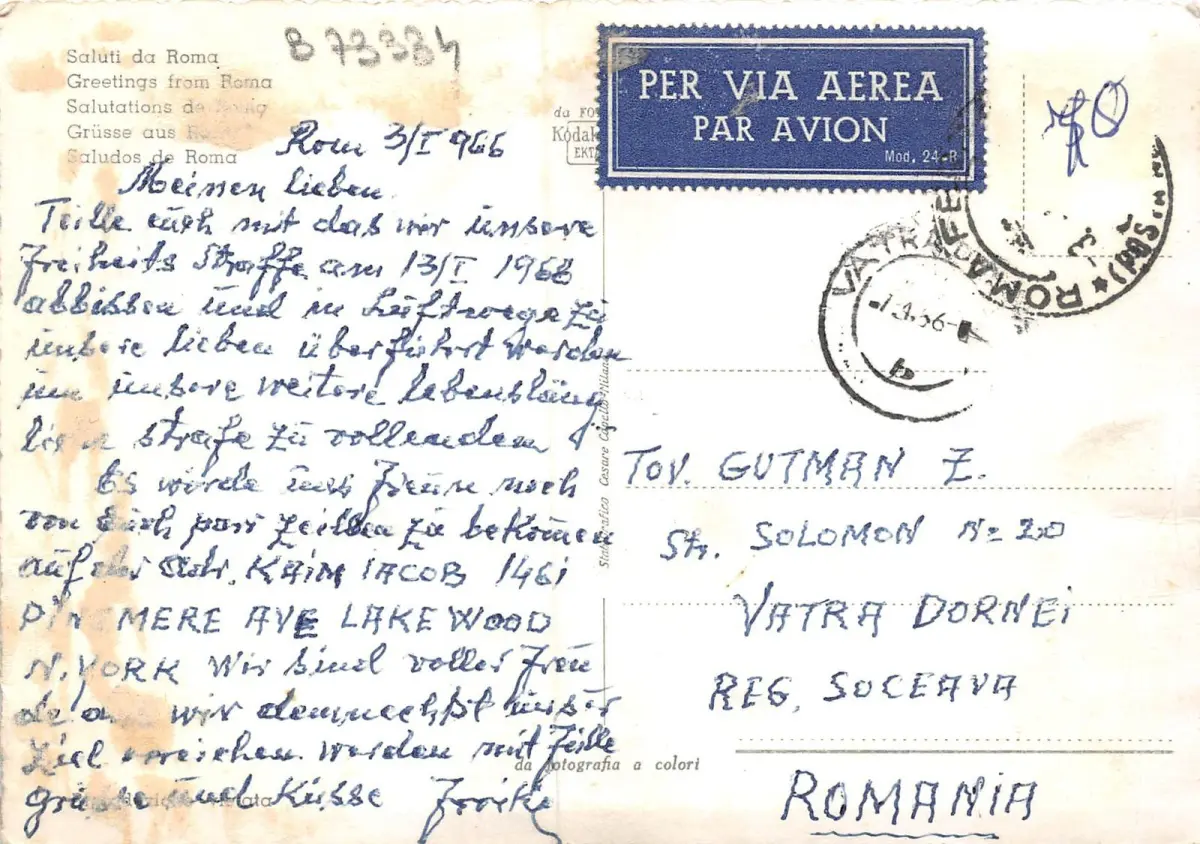 Saluti da Roma
Greetings from Roma
Salutations de
Grüsse aus
Saludos de Roma
B 73334
da FO
Kodak
EKT
PER VIA AEREA
PAR AVION
Mod. 24-R
Rom 3/I 966
Meinen lieben
Teille euch mit das wir unsere
Freiheits Straffe am 13/I 1966
abbissen und in Luftwege zu
unsere lieben überführt werden
um unsere weitere lebensläng
strafe zu vollenden
Es würde uns freun noch
von euch par zeillen zu bekomen
auf der adr. KAIM IACOB 1461
PINEMERE AVE LAKEWOOD
N.YORK wir sind voller freu
de wir demnechst unser
Ziel erreichen werden mit fille
grüsse und Küsse
Stabgrafica Cesare Capello Milano
da fotografia a colori
ROMA FE
VATRA
TOV. GUTMAN Z.
Str. SOLOMON N= 20
VATRA DORNEI
REG. SUCEAVA
ROMANIA